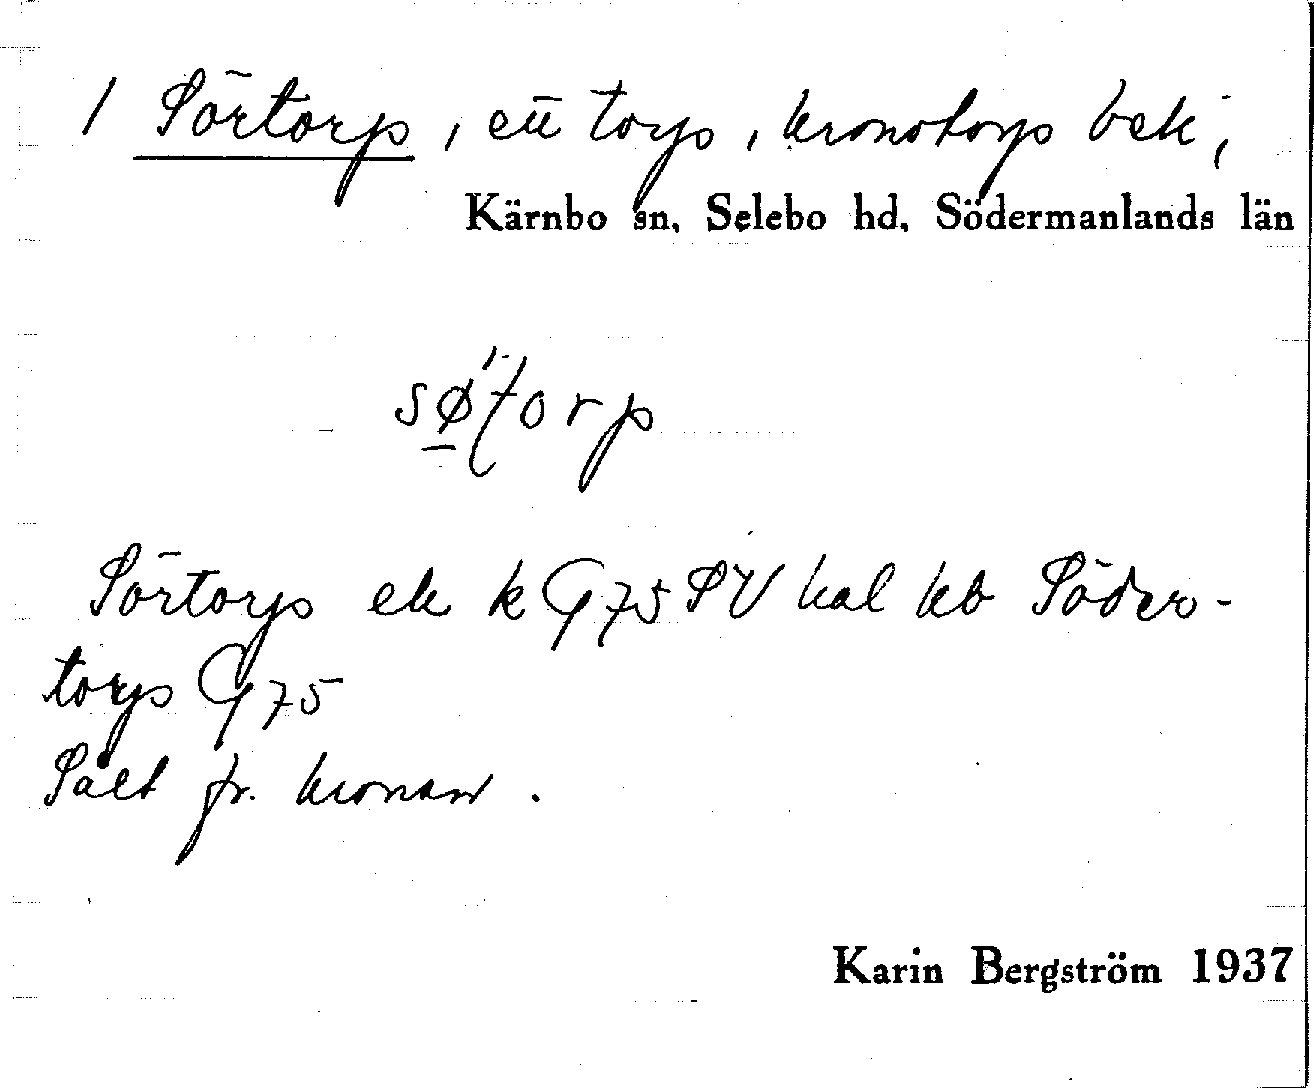 1 Sörtorp, ett torp, kronotorp bek,
Kärnbo sn, Selebo hd, Södermanlands län
sǿ̱torp
Sörtorp ek k G 75 SV kal kb Söder-
torp G 75
Sålt fr. kronan.
Karin Bergström 1937